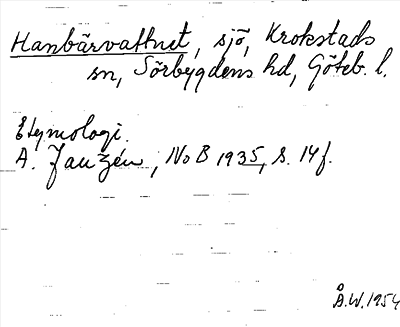 Hanbärvattnet, sjö, Krokstads
sn, Sörbygdens hd, Göteb. l.
Etymologi.
A. Janzén, NoB 1935, s. 14f.
Å.W. 1954